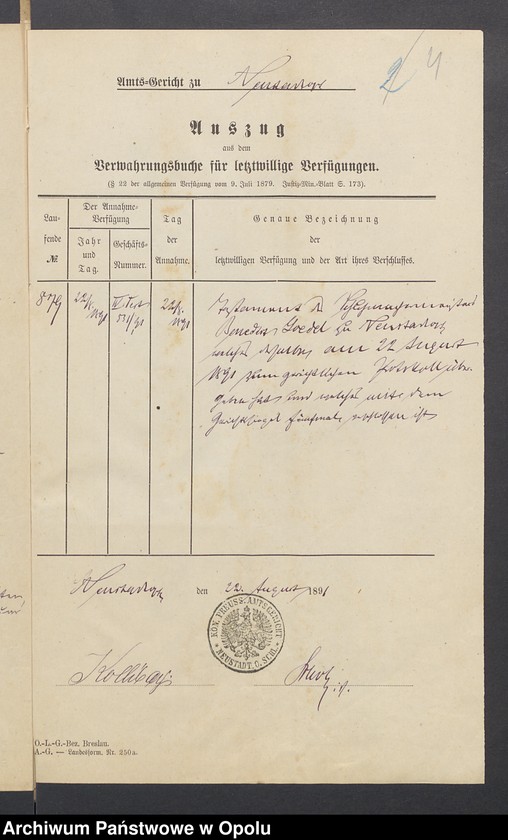 2 4
Amts-Gericht zu Neustadt O/S
Auszug
aus dem
Verwahrungsbuche für letztwillige Verfügungen.
(§ 22 der allgemeinen Verfügung vom 9. Juli 1879. Justiz-Min.-Blatt S. 173).
Lau-
fende
№
Der Annahme-
Verfügung
Jahr
und
Tag.
Geschäfts-
Nummer.
Tag
der
Annahme.
Genaue Bezeichnung
der
letztwilligen Verfügung und der Art ihres Verschlusses.
879
22/8.
1891
22/8.
1891
Testament des
Benedict Goebel zu Neustadt O/S
welches derselbe am 22 August
1891 zum gerichtlichen Protokoll über-
geben hat und welches mit dem
Gerichtssiegel fünfmal verschlossen ist
Neustadt O/S den 22. August 1891
KÖN. PREUSS. AMTSGERICHT
* NEUSTADT, O. SCHL. *
O.-L.-G.-Bez. Breslau.
A.-G. — Landesform. Nr. 250a.
Archiwum Państwowe w Opolu